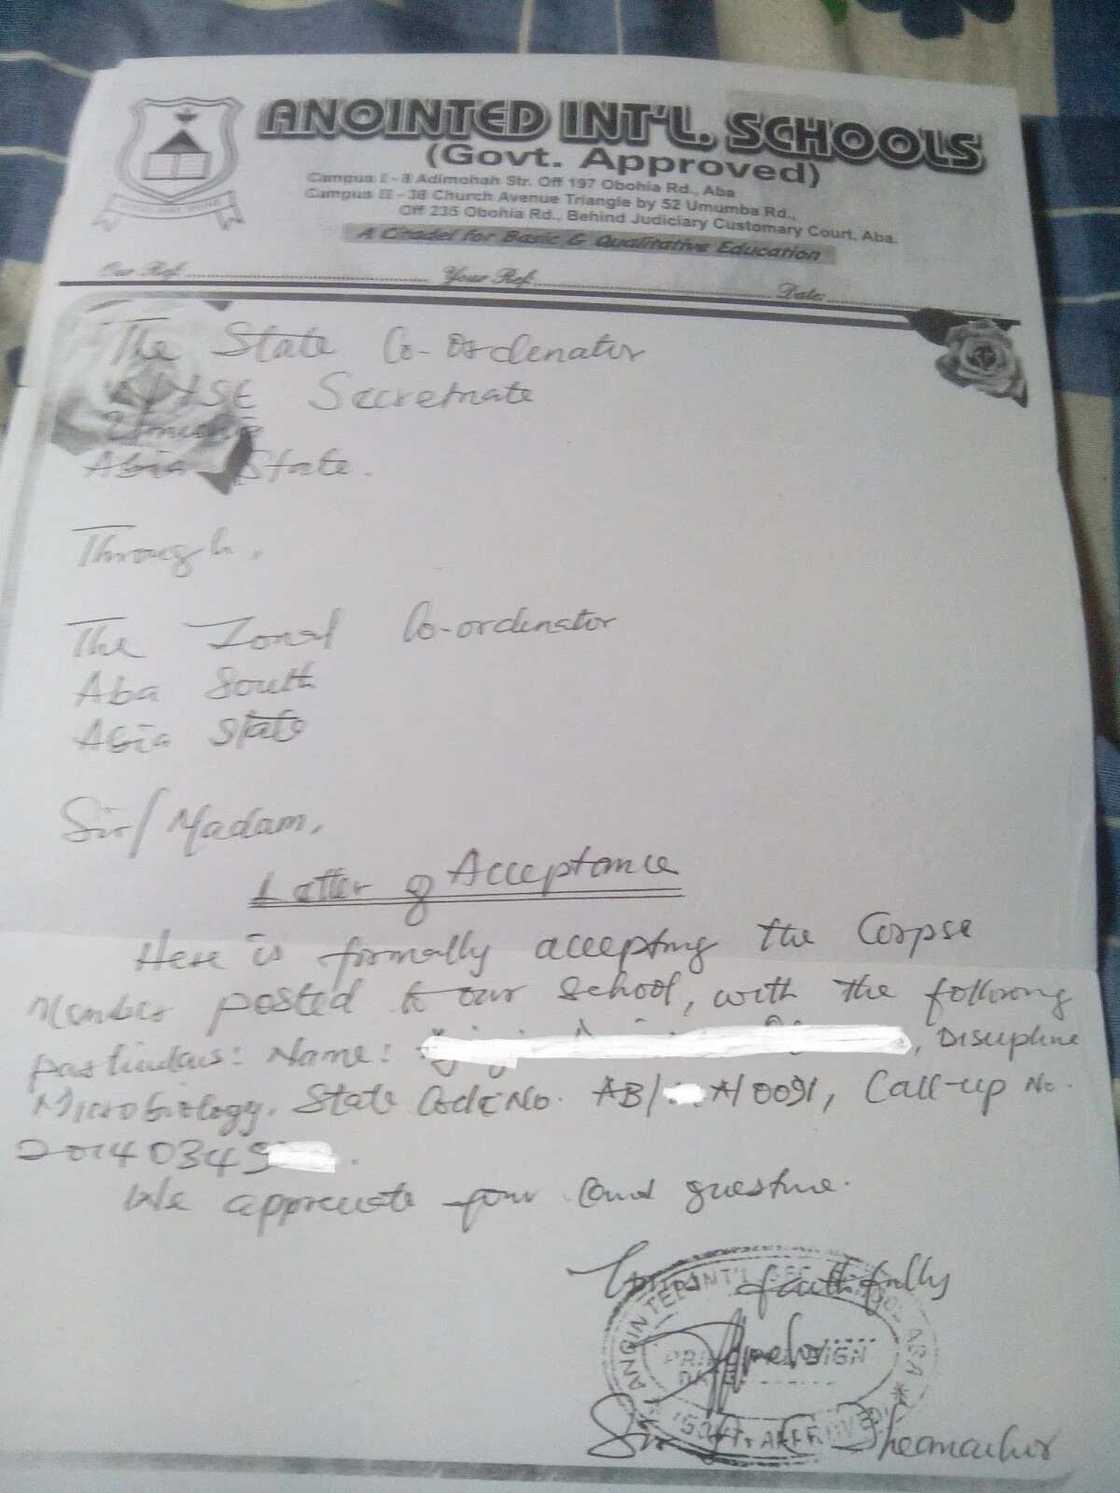 ANOINTED INT'L. SCHOOLS
(Govt. Approved)
Campus I - 8 Adimohah Str. Off 197 Obohia Rd., Aba
Campus II - 38 Church Avenue Triangle by 52 Umumba Rd.,
Off 235 Obohia Rd., Behind Judiciary Customary Court, Aba.
A Citadel for Basic & Qualitative Education
Our Ref. Your Ref. Date:
The State Co-ordenator
Secretriate
Abia State.
Through,
The Zonal Co-ordinator
Aba South
Abia State
Sir/Madam,
Latter of Acceptance
Here is formally accepting the Corpse
Member posted to our school, with the following
particulars: Name: , Discipline
Microbiology. State Code No. AB/ A/0091, Call-up No.
20140349 .
We appreciate your
Yours faithfully
ANOINTED INT'L SEC. SCHOOL ABA
PRINCIPAL SIGN
DATE
(GOVT. APPROVED)
Sir